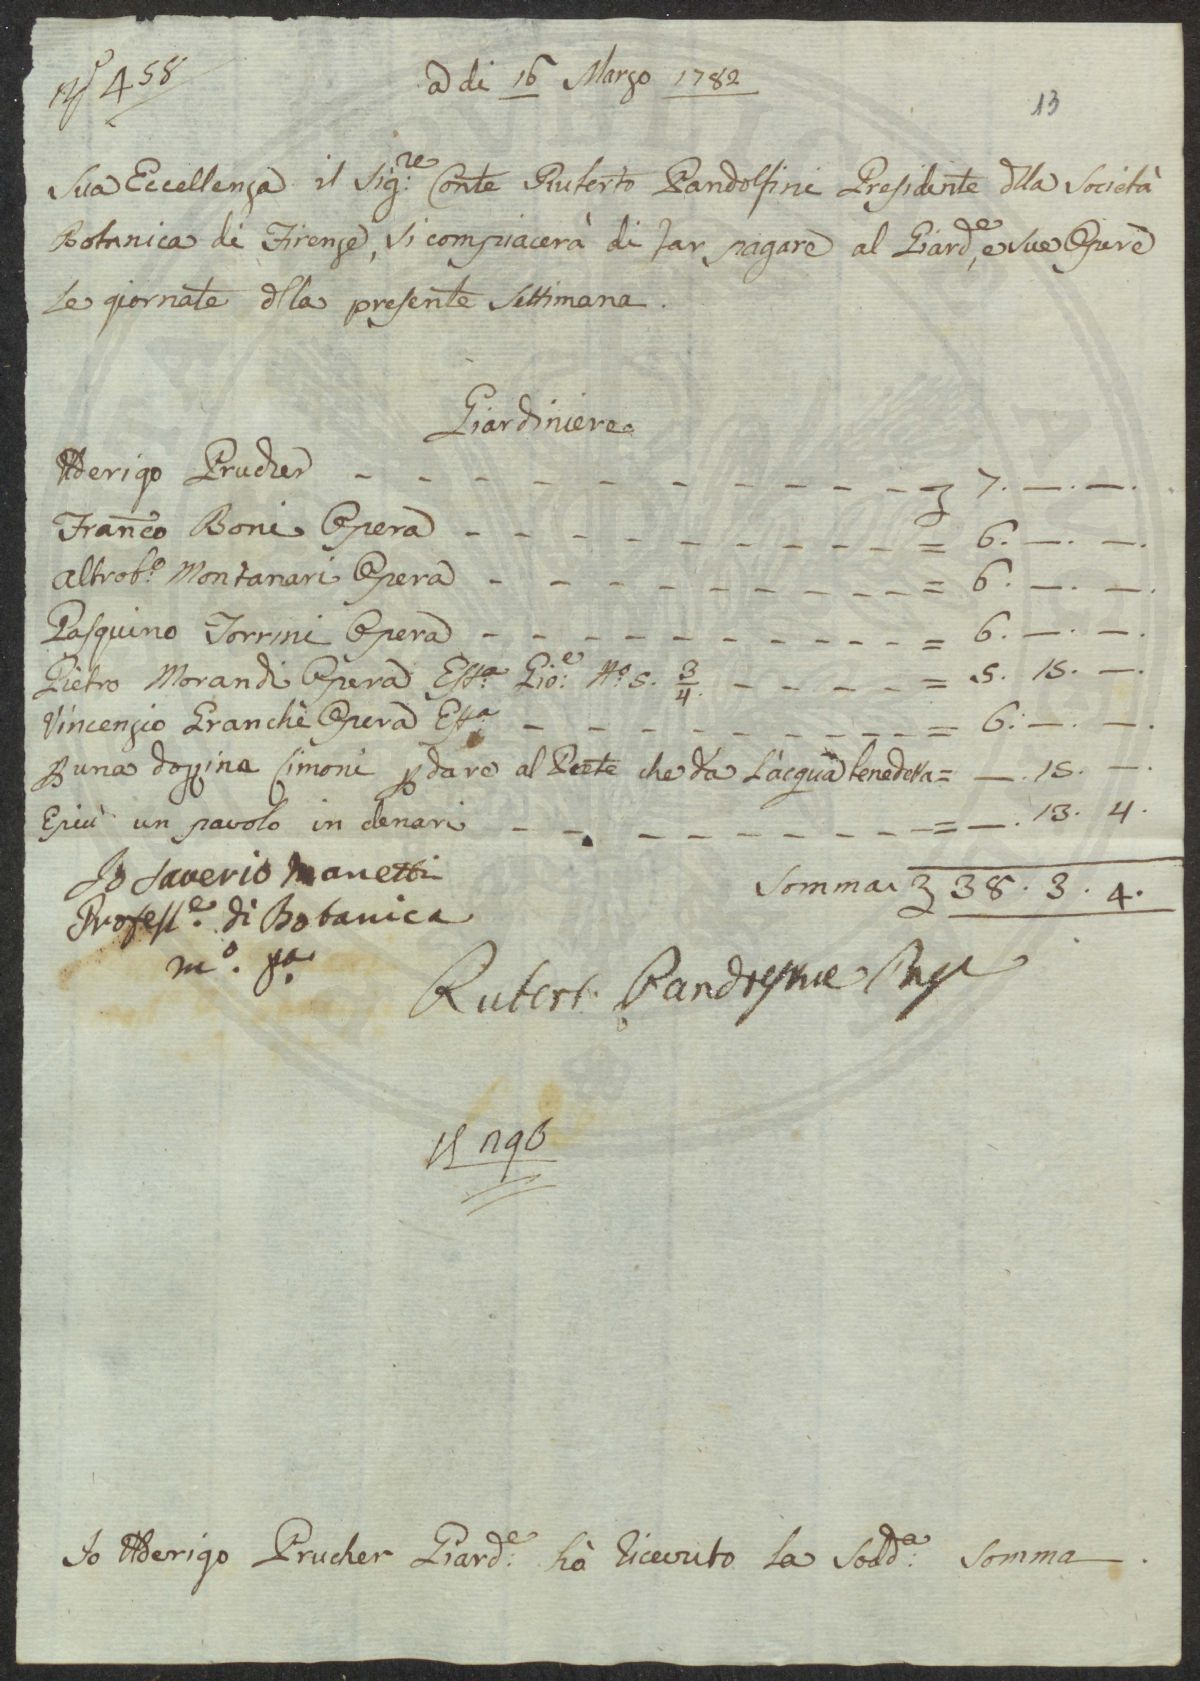 N.° 458
a di 16 Marzo 1782
13
Sua Eccellenza il Sig:re Conte Ruberto Pandolfini Presidente dlla Società
Botanica di Firenze, si compiacerà di far pagare al Giard:e, e sue Opere
le giornate dlla presente Settimana.
Giardiniere
Arrigo Prucher - - - - - - - - - - - - 7. —. —.
Fran:co Boni Opera - - - - - - - - - = 6. —. —.
Altrob:o Montanari Opera - - - - - - - - - = 6. —. —.
Pasquino Torrini Opera - - - - - - - - - - = 6. —. —.
Pietro Morandi Opera Ess:a Gio:e N:o 5. 3/4. - - - - = 5. 15. —.
Vincenzio Granchi Opera Ess:a - - - - - - - - - = 6. —. —.
P una dozzina Limoni p dare al Prete che dà l'acqua benedetta = —. 15. —.
E più un pavolo in denari - - - - - - - - = —. 13. 4.
Io Saverio Manetti
Somma 38. 3. 4.
Profess:e di Botanica
m:o p:a
Rubert: Pandolfini
Io Arrigo Prucher Giard:e hà ricevuto la Sodd:a Somma.